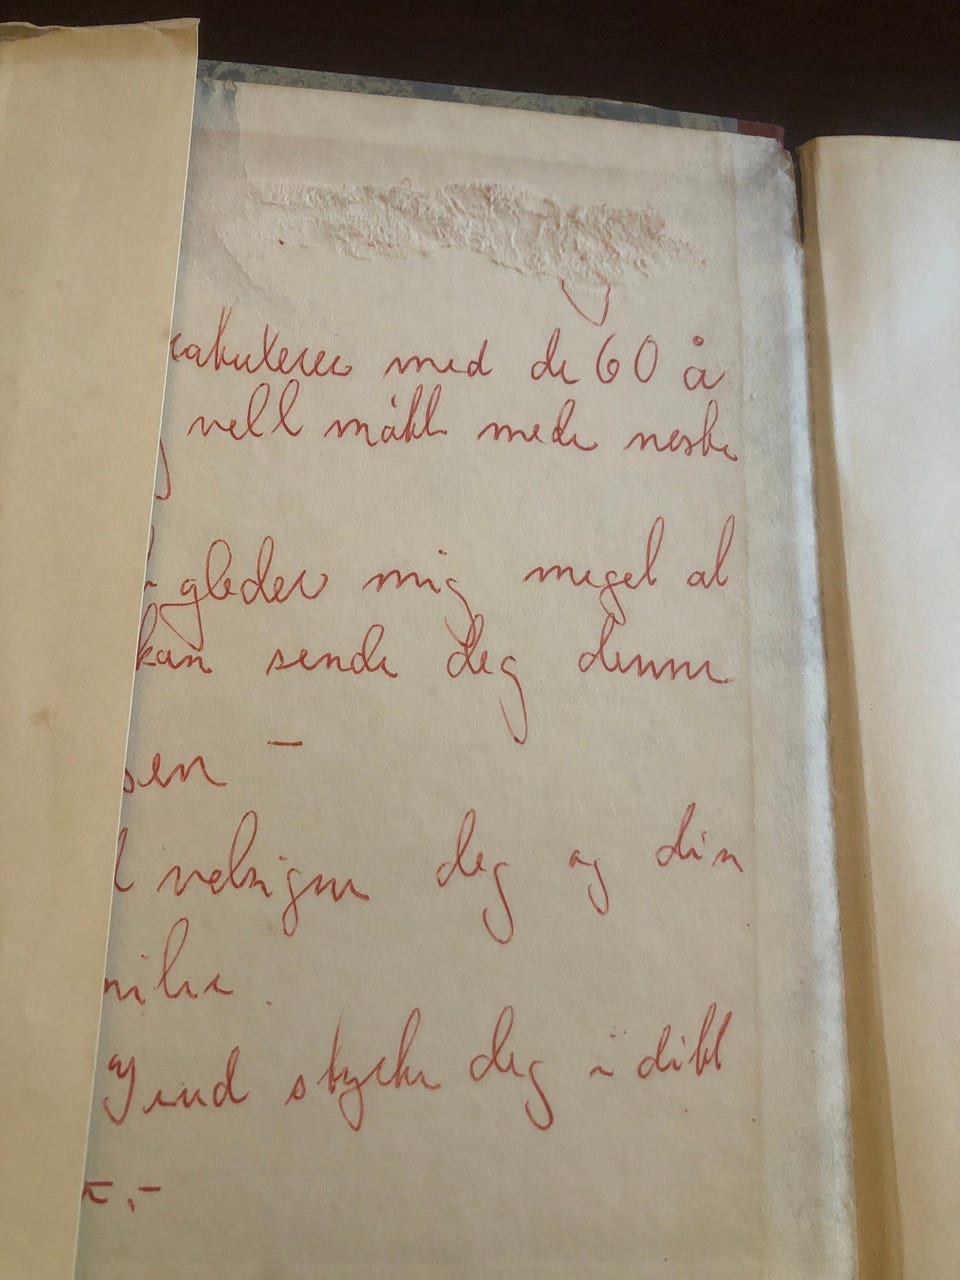 med de 60 å
vell måtte møde neste
gleder mig meget at
kan sende deg denne
sen –
velsigne deg og din
milie.
Gud styrke deg i ditt